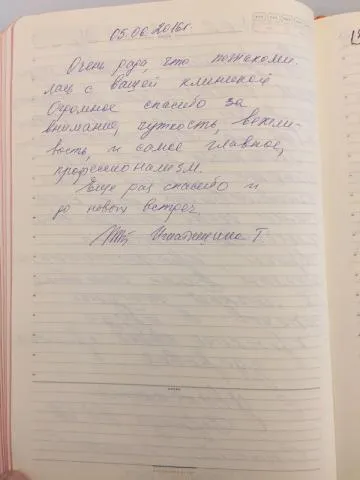 05.06.2016г.
Очень рада, что познакоми
лась с вашей клиникой
Огромное спасибо за
внимание, чуткость, вежли-
вость, и самое главное,
профессионализм.
Еще раз спасибо и
до новых встреч.
Т.